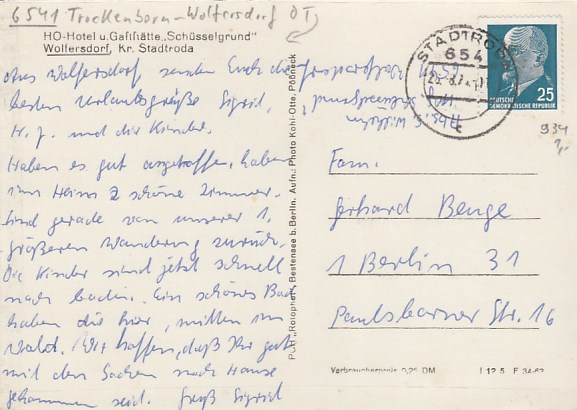 6541 Trockenborn-Wolfersdorf OT
HO-Hotel u. Gaststätte „Schüsselgrund"
Wolfersdorf, Kr. Stadtroda
Aus Wolfersdorf senden Euch die
besten Urlaubsgrüße Sigrid,
H. J. und die Kinder.
Haben es gut angetroffen, haben
im Heim 2 schöne Zimmer.
Sind gerade von unserer 1.
größeren Wanderung zurück.
Die Kinder sind jetzt schnell
nach baden. Ein schönes Bad
haben die hier, mitten im
Wald. Wir hoffen, daß Ihr gut
mit den Sachen nach Hause
gekommen seid. Gruß Sigrid
PGH „Rotophot", Bestensee b. Berlin. Aufn.: Photo Kohl-Otte, Pößneck
STADTRODA
654
DEUTSCHE
DEMOKRATISCHE REPUBLIK
25
934
Fam.
Gerhard Benge
1 Berlin 31
Paulsborner Str. 16
Verbraucherpreis 0,25 DM